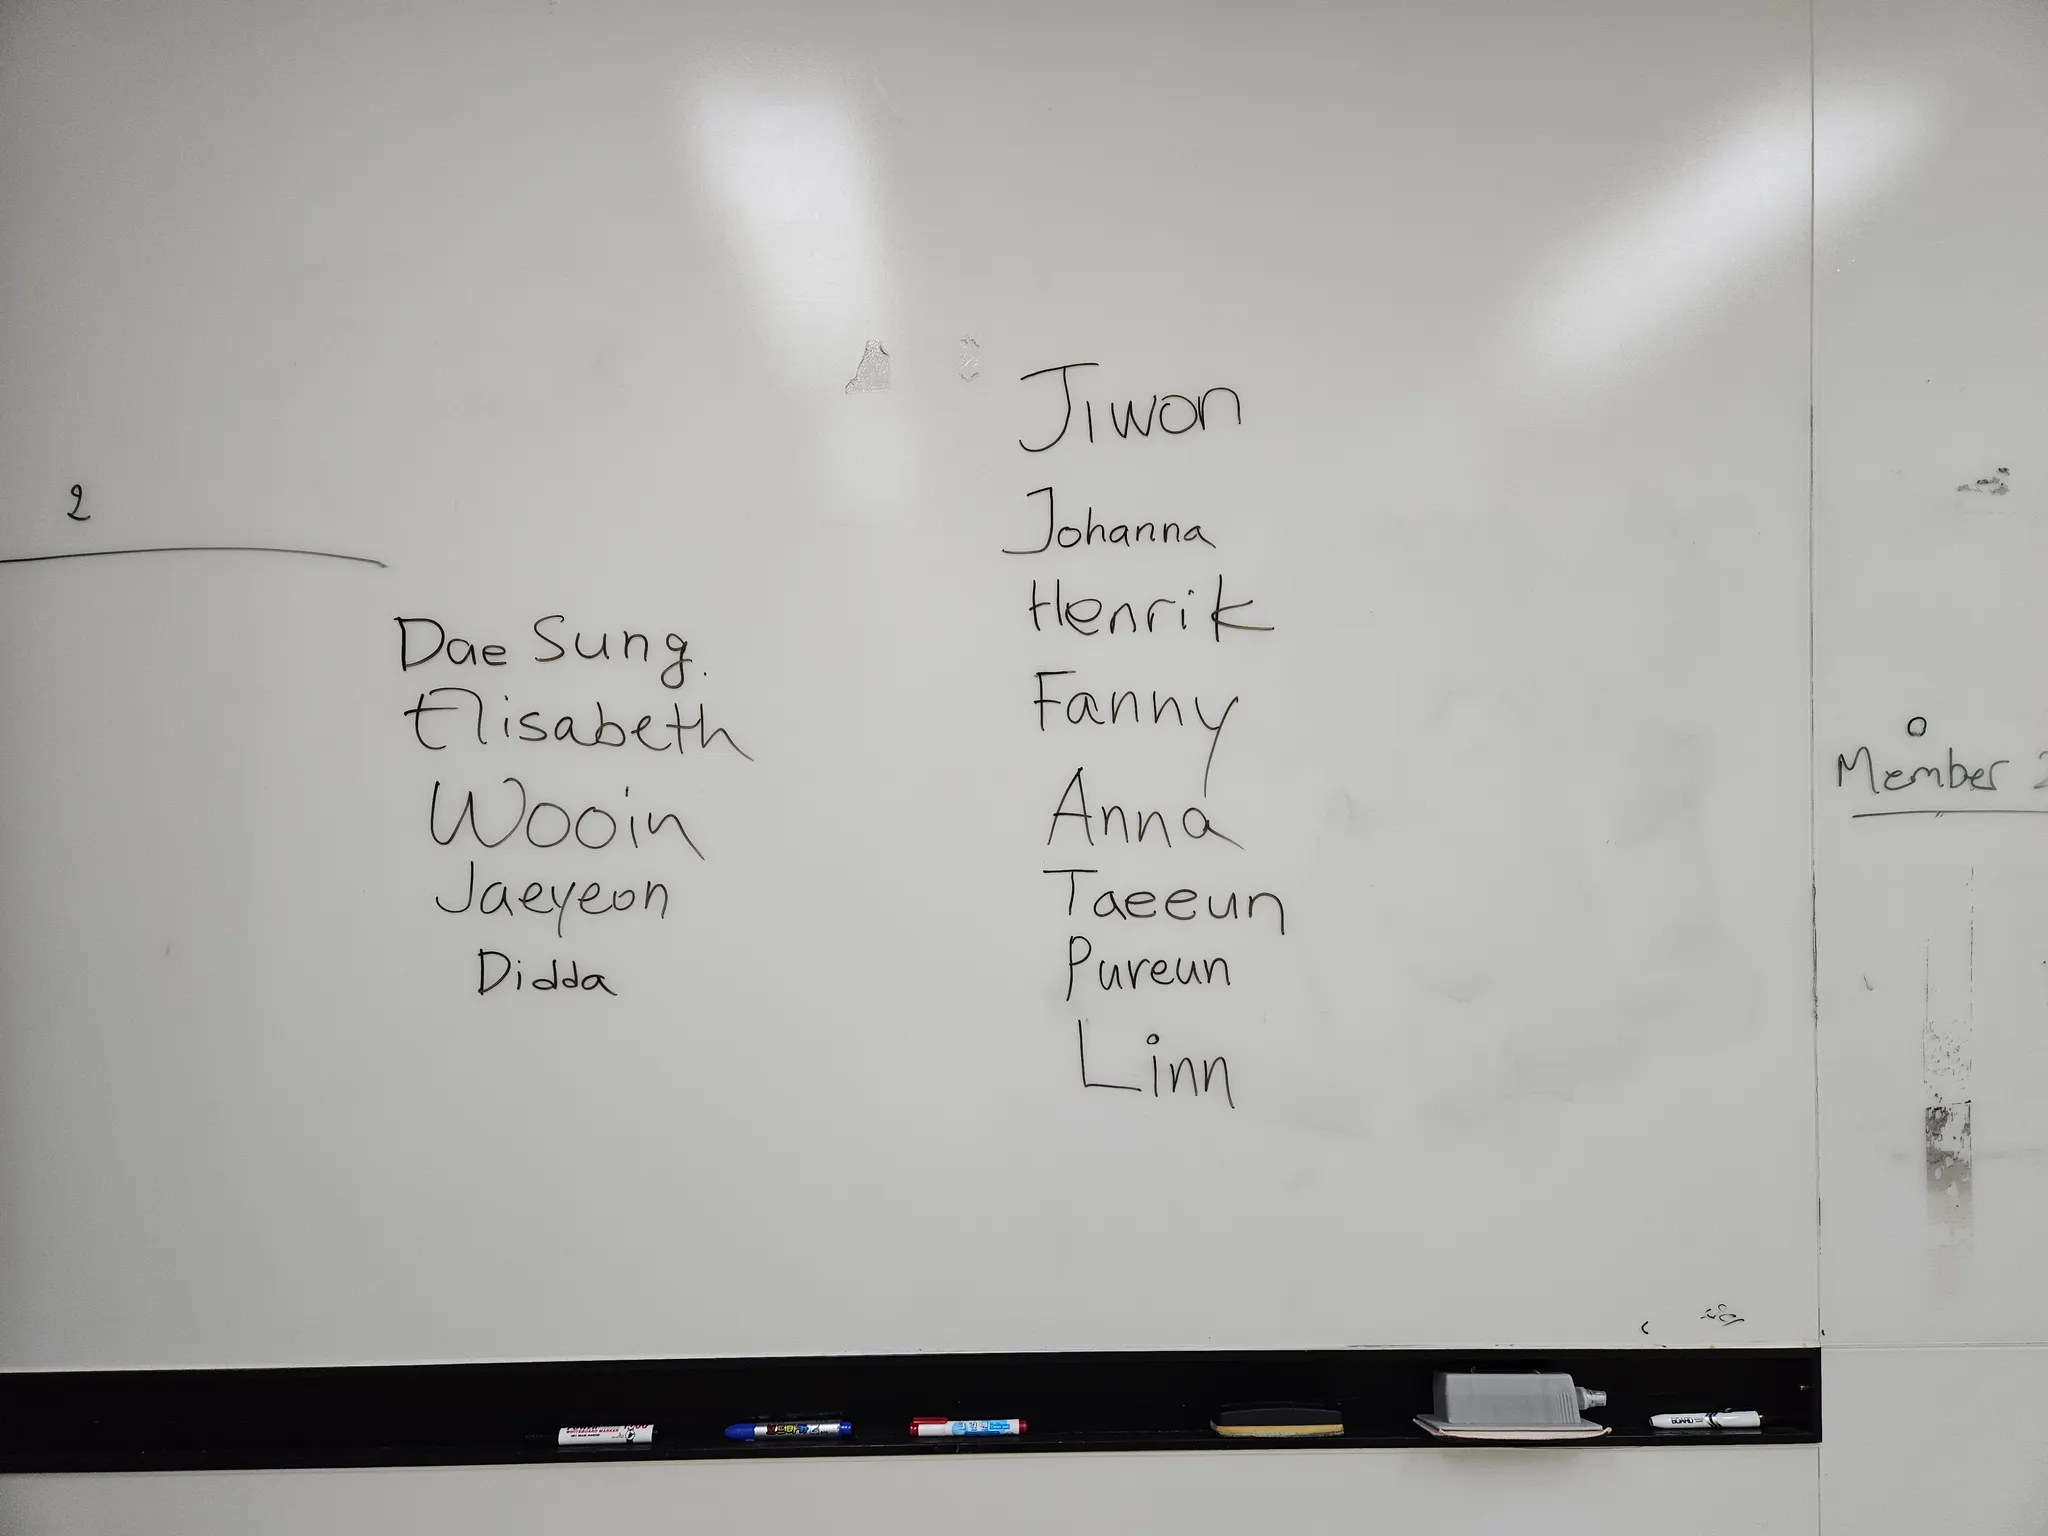 2
Dae Sung.
Elisabeth
Wooin
Jaeyeon
Didda
Jiwon
Johanna
Henrik
Fanny
Anna
Taeeun
Pureun
Linn
Member 2
WHITEBOARD MARKER
BOARD